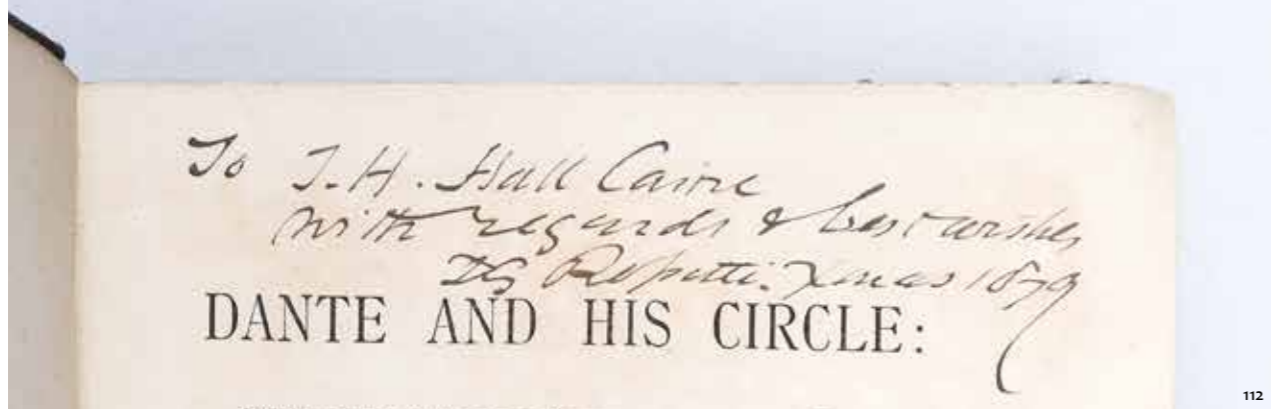 To T. H. Hall Caine
with regards & best wishes
DG Rossetti. Xmas 1879
DANTE AND HIS CIRCLE:
112